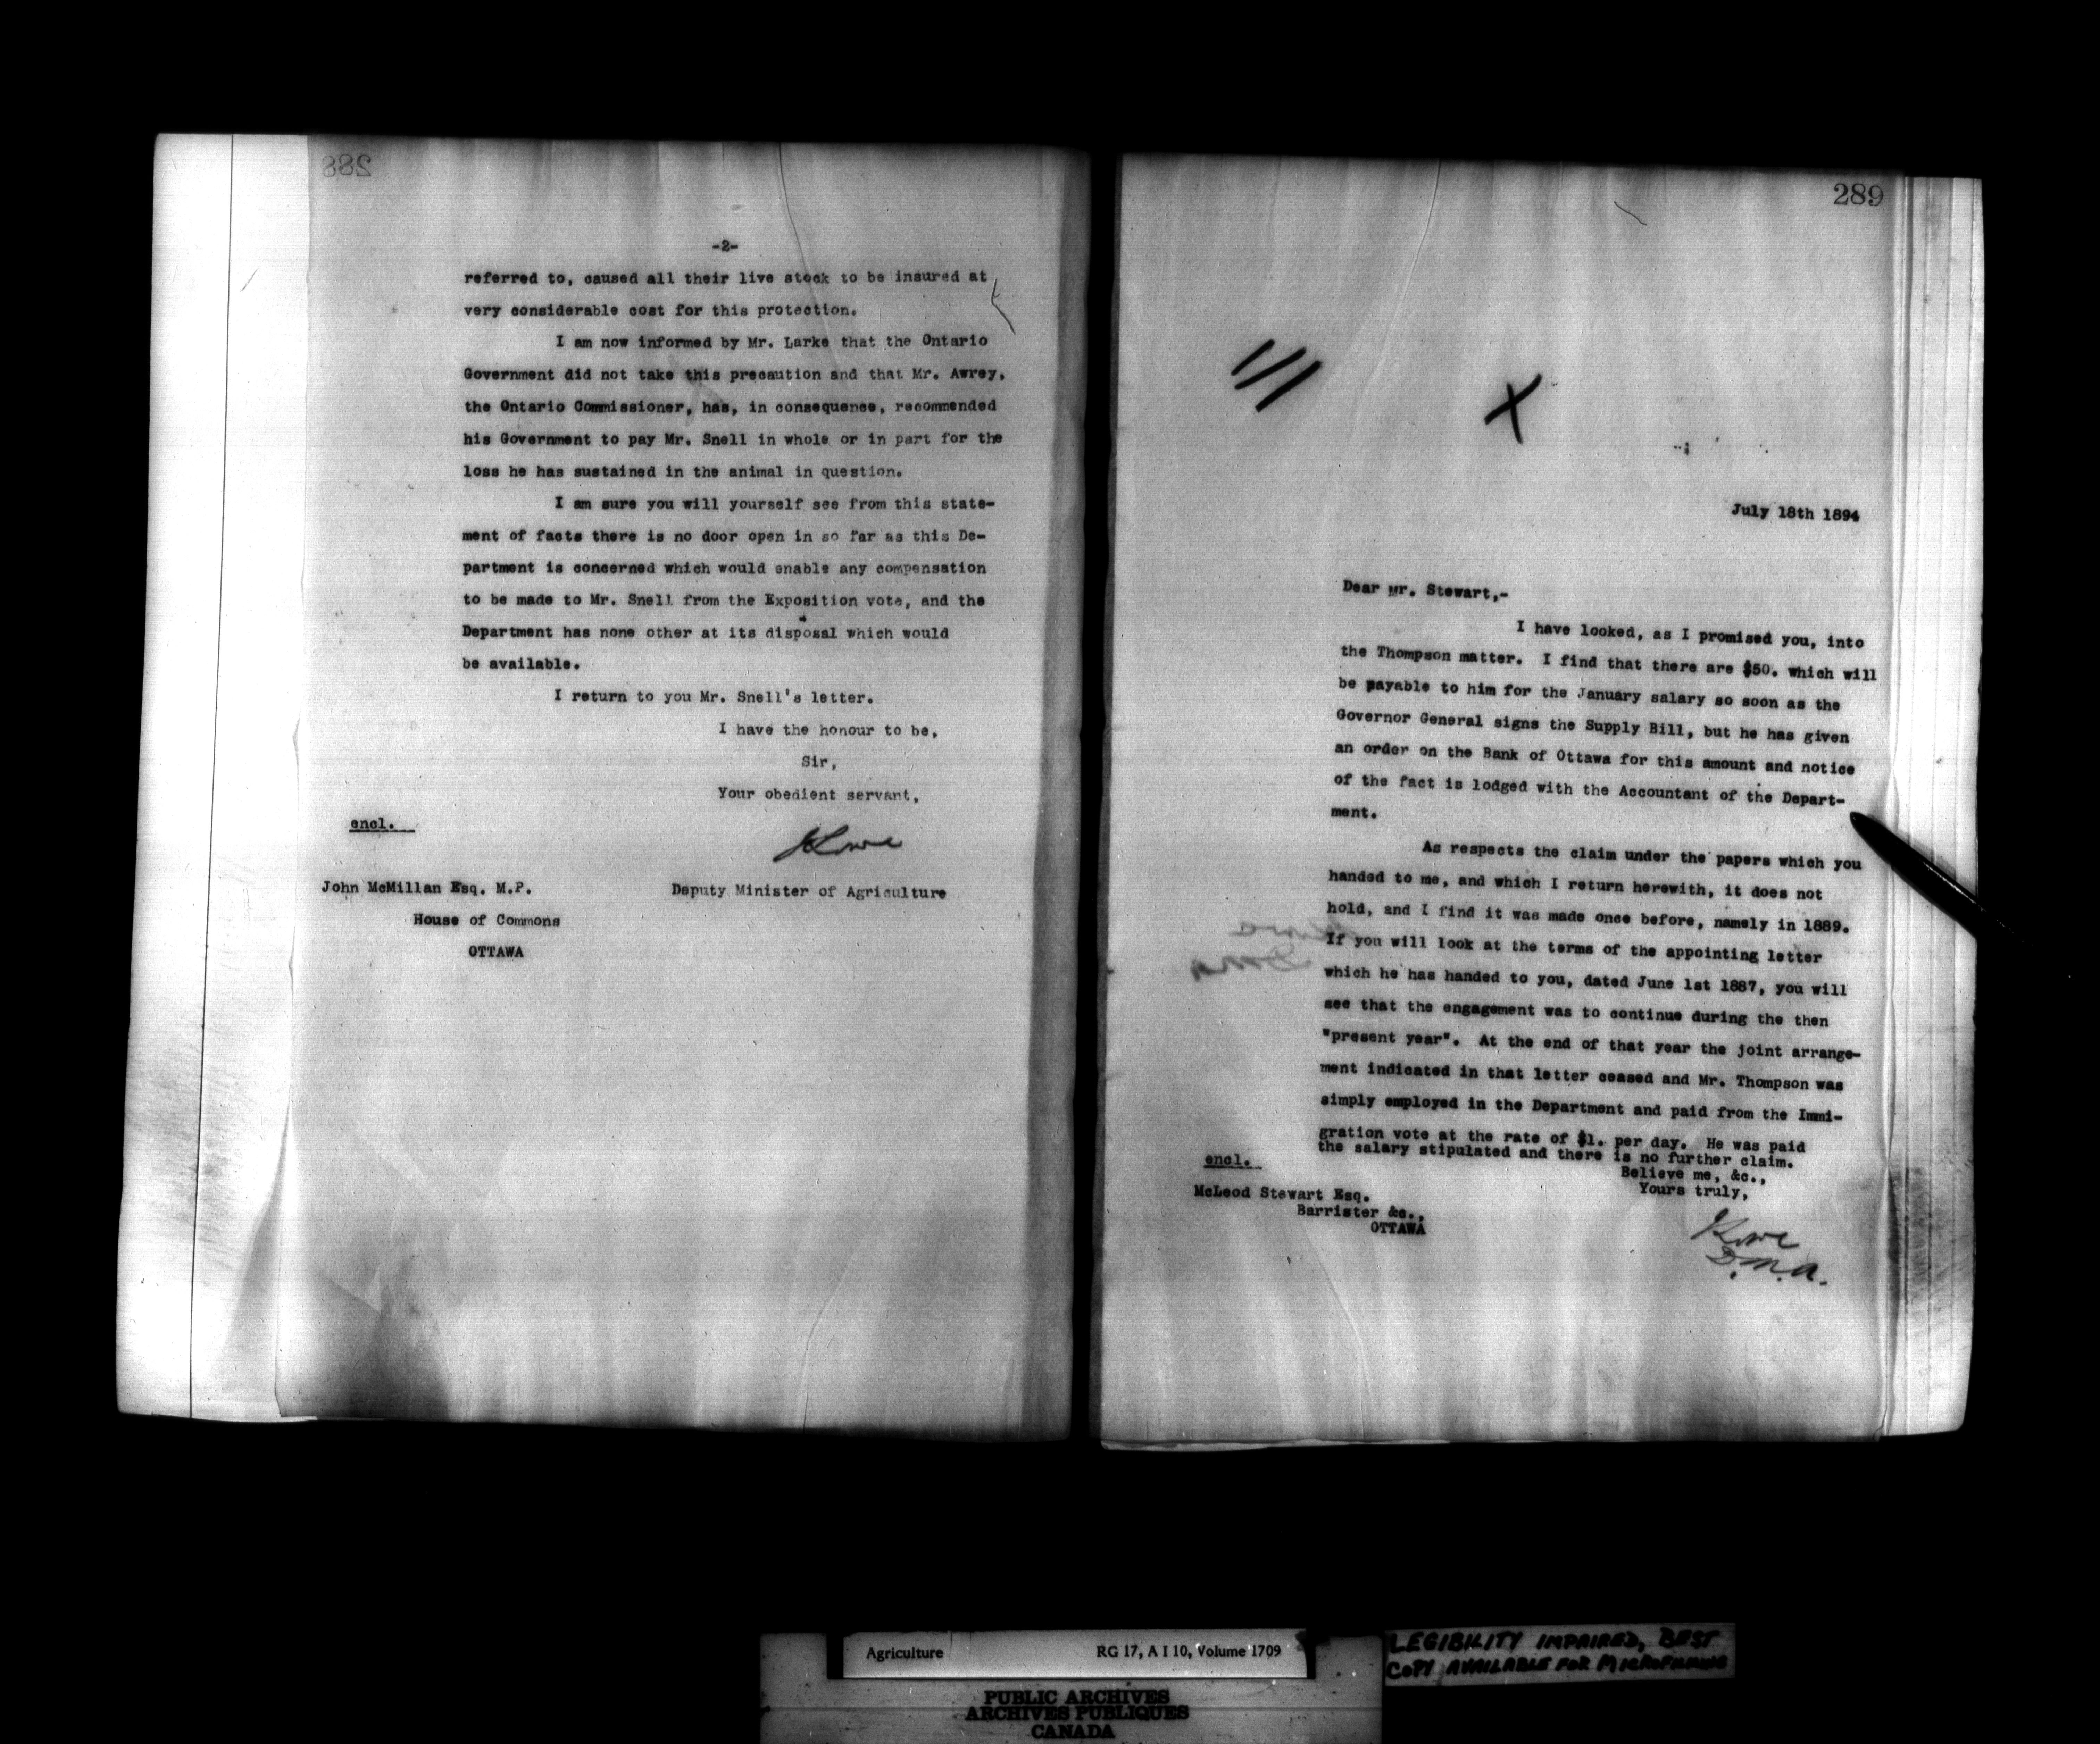 288
-2-
referred to, caused all their live stock to be insured at
very considerable cost for this protection.
I am now informed by Mr. Larke that the Ontario
Government did not take this precaution and that Mr. Awrey,
the Ontario Commissioner, has, in consequence, recommended
his Government to pay Mr. Snell in whole or in part for the
loss he has sustained in the animal in question.
I am sure you will yourself see from this state-
ment of facts there is no door open in so far as this De-
partment is concerned which would enable any compensation
to be made to Mr. Snell from the Exposition vote, and the
Department has none other at its disposal which would
be available.
I return to you Mr. Snell's letter.
I have the honour to be,
Sir,
Your obedient servant,
encl.
Lowe
John McMillan Esq. M.P.
Deputy Minister of Agriculture
House of Commons
OTTAWA
289
July 18th 1894
Dear Mr. Stewart,-
I have looked, as I promised you, into
the Thompson matter. I find that there are $50. which will
be payable to him for the January salary so soon as the
Governor General signs the Supply Bill, but he has given
an order on the Bank of Ottawa for this amount and notice
of the fact is lodged with the Accountant of the Depart-
ment.
As respects the claim under the papers which you
handed to me, and which I return herewith, it does not
hold, and I find it was made once before, namely in 1889.
If you will look at the terms of the appointing letter
which he has handed to you, dated June 1st 1887, you will
see that the engagement was to continue during the then
"present year". At the end of that year the joint arrange-
ment indicated in that letter ceased and Mr. Thompson was
simply employed in the Department and paid from the Immi-
gration vote at the rate of $1. per day. He was paid
the salary stipulated and there is no further claim.
encl.
Believe me, &c.,
Yours truly,
McLeod Stewart Esq.
Barrister &c.,
OTTAWA
Lowe
D.M.A.
Agriculture
RG 17, A I 10, Volume 1709
LEGIBILITY IMPAIRED, BEST
COPY AVAILABLE FOR MICROFILMING
PUBLIC ARCHIVES
ARCHIVES PUBLIQUES
CANADA